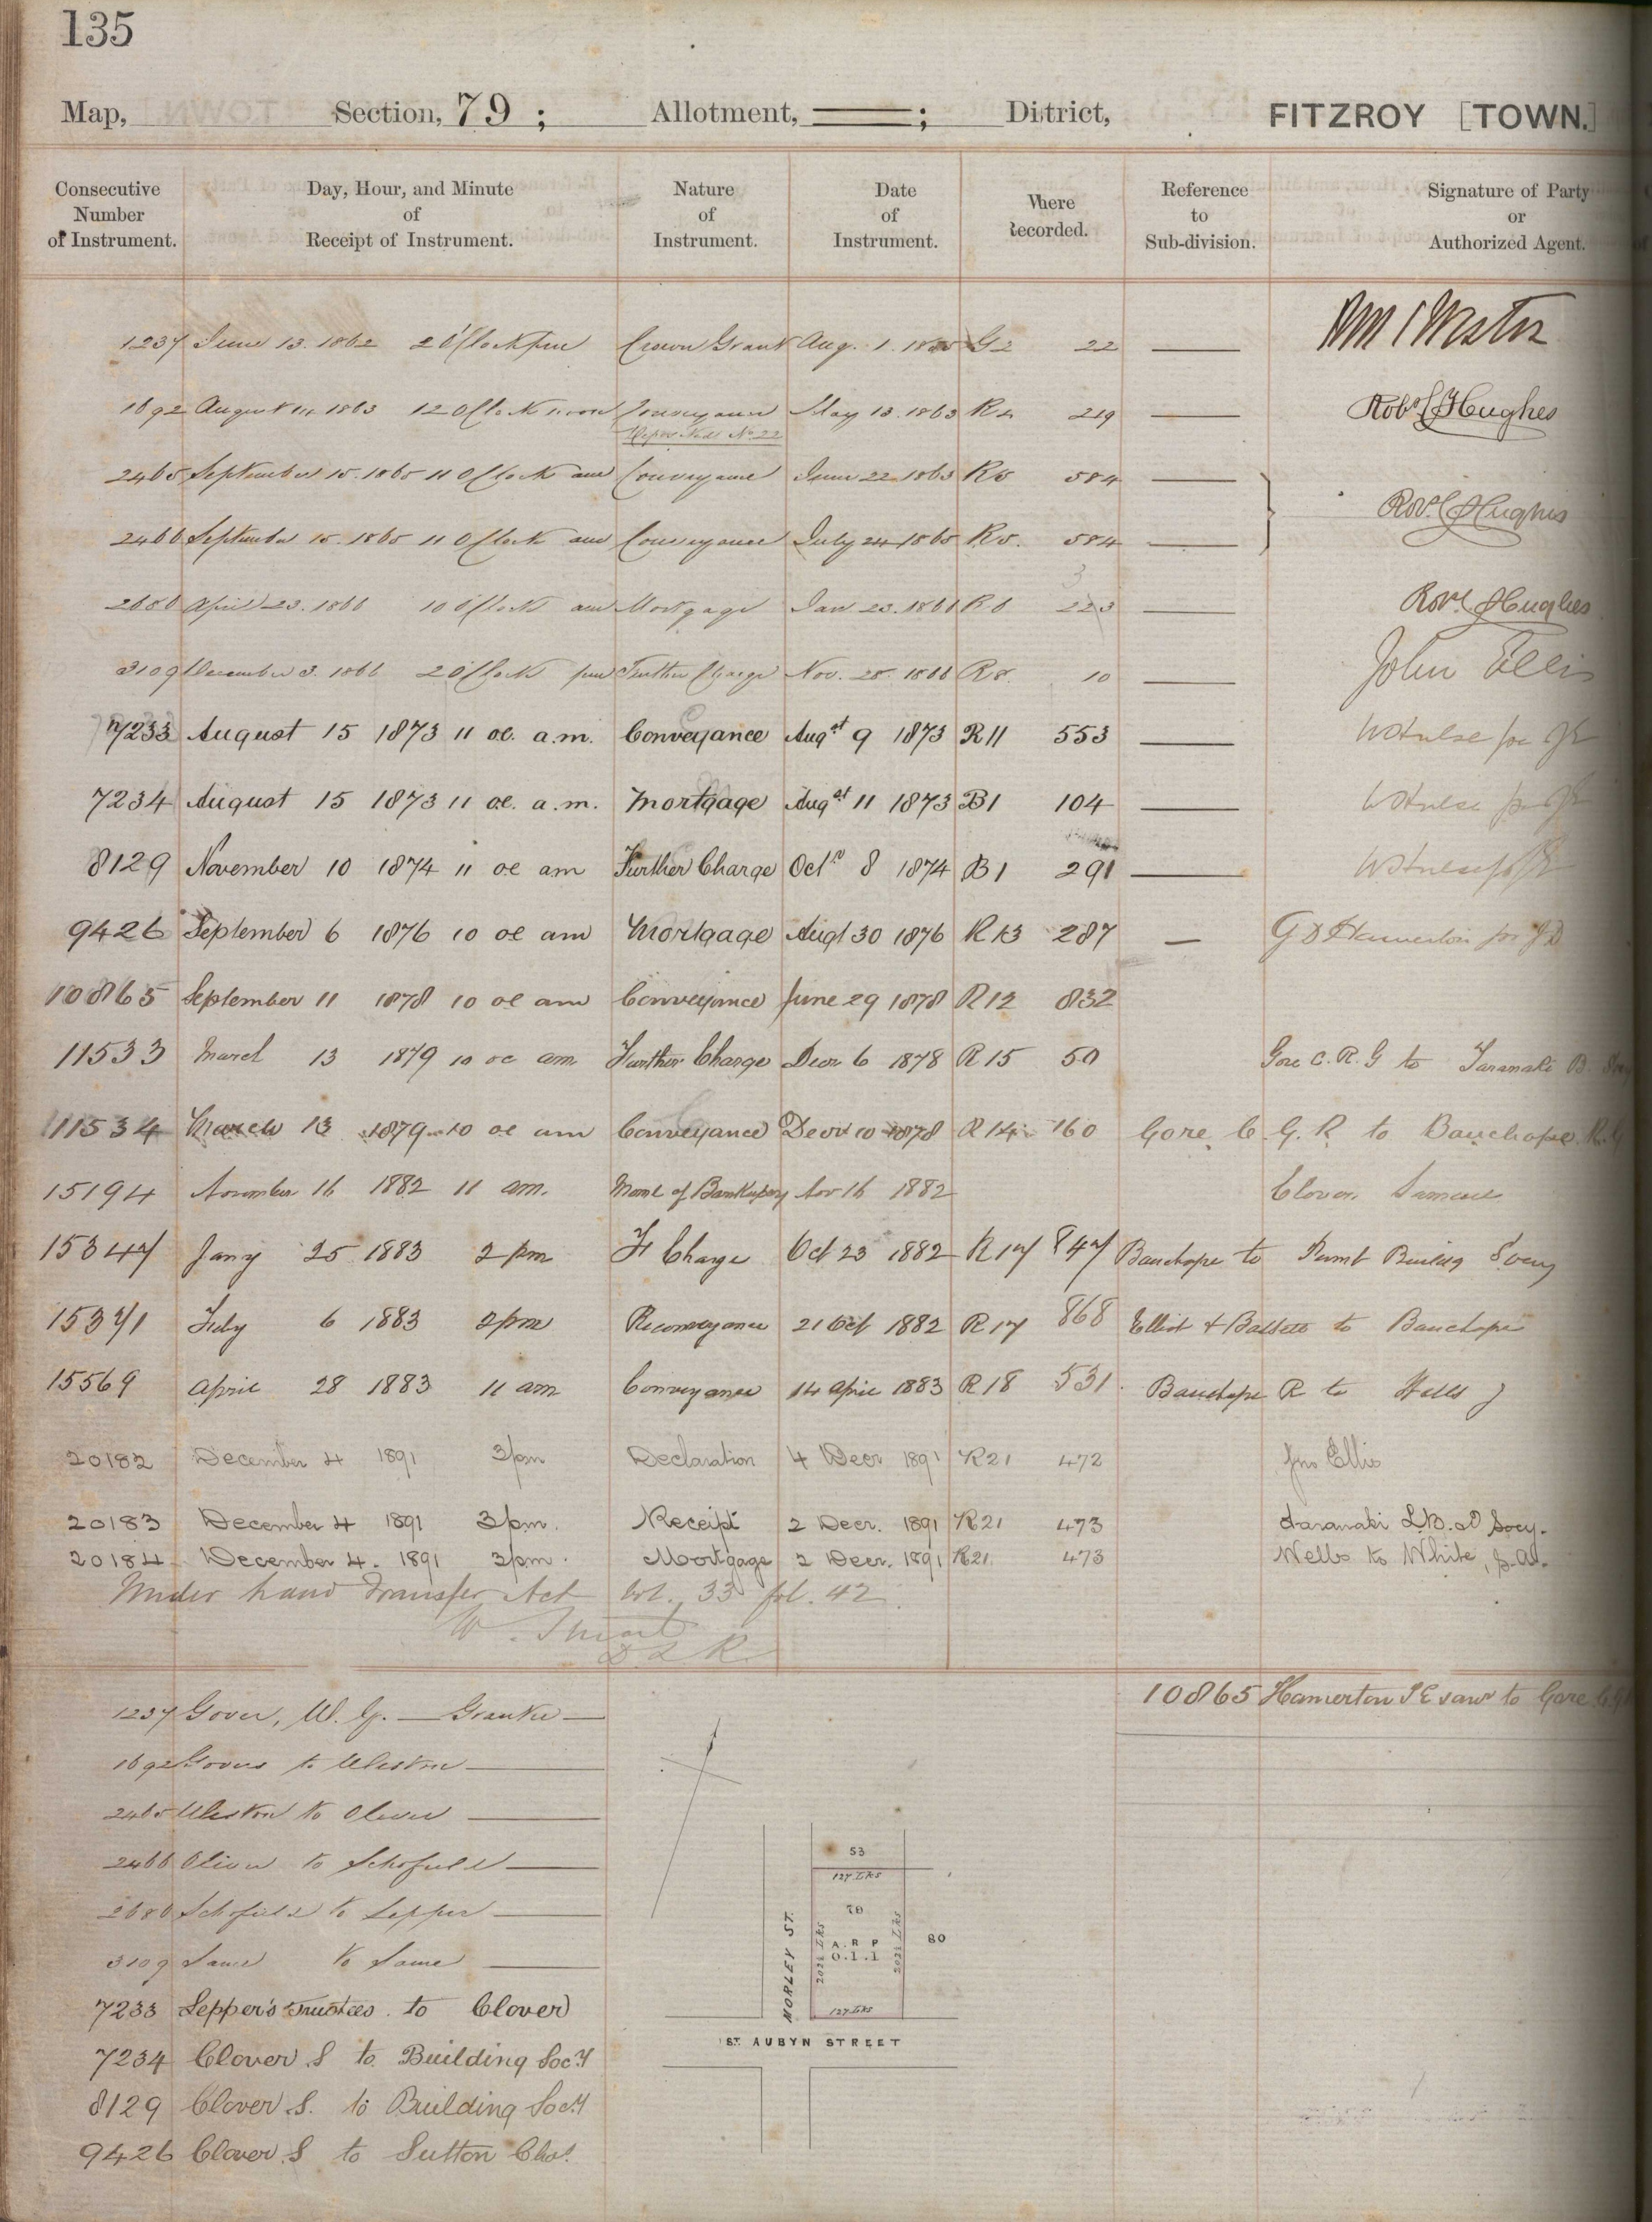 135
Map, Section, 79 ; Allotment, ——— ; District, FITZROY [TOWN.]
Consecutive Number of Instrument. Day, Hour, and Minute of Receipt of Instrument. Nature of Instrument. Date of Instrument. Where Recorded. Reference to Sub-division. Signature of Party or Authorized Agent.
1237 June 13. 1862 2 O'Clock pm Crown Grant Aug. 1. G2 22 ———
1692 August 1863 12 O'Clock noon Conveyance May 13. 1863 R4 219 ——— Robt Hughes
No 22
2465 September 15. 1865 11 O'Clock am Conveyance June 22. 1863 R5 584 ———
Robt Hughes
2466 September 15. 1865 11 O'Clock am Conveyance July 24 1865 R5. 584 ———
3
2680 April 23. 1866 10 O'Clock am Mortgage Jan 23. R6 223 ——— Robt Hughes
3109 December 3. 1866 2 O'Clock pm Further Charge Nov. 28. 1866 R8. 10 ——— John Ellis
7233 August 15 1873 11 oc. a.m. Conveyance Augst 9 1873 R11 553 ———
7234 August 15 1873 11 oc. a.m. Mortgage Augst 11 1873 B1 104 ———
8129 November 10 1874 11 oc am Further Charge Octr 8 1874 B1 291 ———
9426 September 6 1876 10 oc am Mortgage Augt 30 1876 R13 287 — G D Hamerton for
10865 September 11 1878 10 oc am Conveyance June 29 1878 R12 832
11533 March 13 1879 10 oc am Further Charge Decr 6 1878 R15 50 Gore C. R. G to Taranaki B.
11534 March 13 1879 10 oc am Conveyance Decr 10 1878 R14 160 Gore C. G. R to Bauchope R.
15194 November 16 1882 11 am. Meml of Bankruptcy Nov 16 1882 Clover Samuel
15347 Jany 25 1883 2 pm Fr Charge Oct 23 1882 R17 847 Bauchope to Building Socy
15371 Feby 6 1883 2 pm Reconveyance 21 Oct 1882 R17 868 Elliot & Bassett to Bauchope
15569 April 28 1883 11 am Conveyance 14 April 1883 R18 531. Bauchope R to Wells J
20182 December 4 1891 3pm Declaration 4 Decr 1891 R21 472 Jno Ellis
20183 December 4 1891 3pm. Receipt 2 Decr. 1891 R21 473 Taranaki Socy.
20184 December 4. 1891 3pm. Mortgage 2 Decr. 1891 R21. 473 Wells to White,
Under Land Transfer Act Vol. 33 fol. 42
W. Stuart
D L R.
10865 Hamerton to Gore
1237 Gover, W. G. — Grantee —
1692 Gover to Weston ———
2465 Weston to Oliver ———
2466 Oliver to Schofield ———
2680 Schofield to Lepper ———
3109 Same to Same ———
7233 Lepper's Trustees. to Clover
7234 Clover S to Building Socy
8129 Clover S. to Building Socy
9426 Clover S to Sutton Chas.
53
127 Lks
79
A. R P
0.1.1
202½ Lks
202½ Lks
80
MORLEY ST.
127 Lks
ST. AUBYN STREET